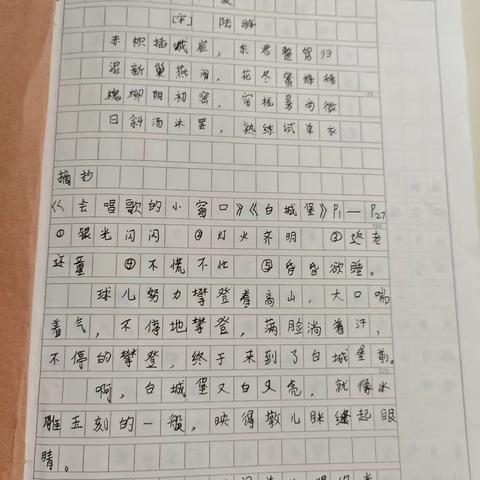 夏
[宋] 陆游
赤帜插城扉，东君整驾归
泥新巢燕闹，花尽蜜蜂稀
槐柳阴初密，帘栊暑尚微
日斜汤沐罢，熟练试单衣
摘抄
《会唱歌的小窗口》《白城堡》P1—P27
①银光闪闪 ②灯火齐明 ③返老
还童 ④不慌不忙 ⑤昏昏欲睡。
球儿努力攀登着高山，大口喘
着气，不停地攀登，满脸淌着汗，
不停的攀登，终于来到了白城堡前。
啊，白城堡又白又亮，就像冰
雕玉刻的一般，映得敬儿眯缝起眼
睛。